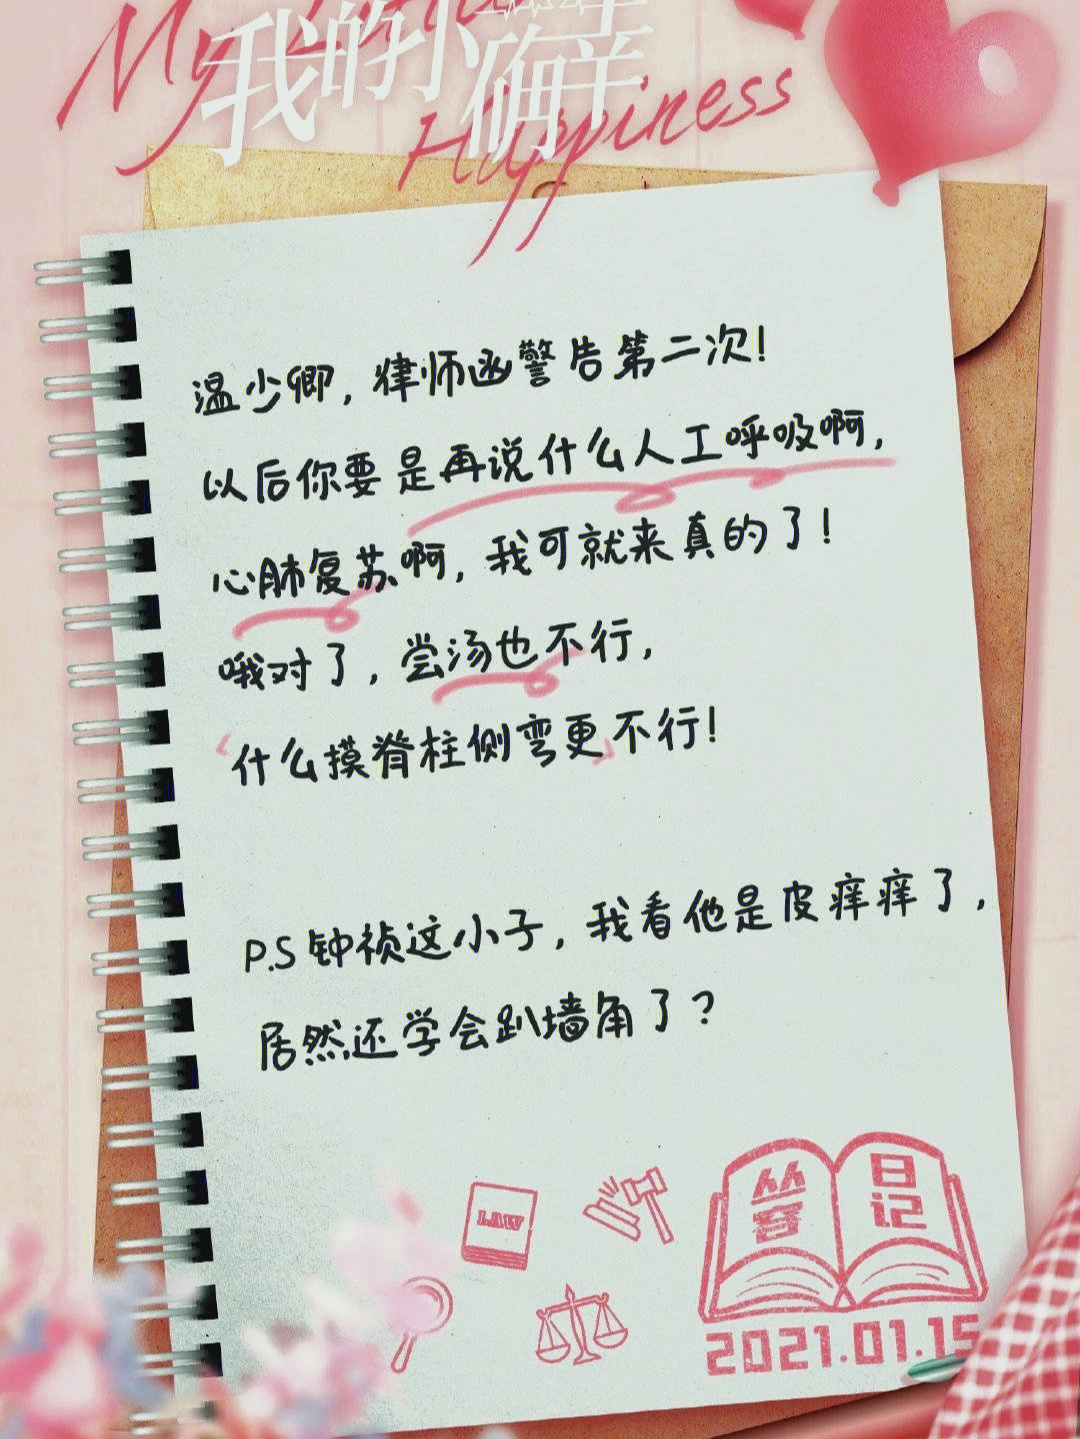 My Little
Happiness
我的小确幸
温少卿，律师函警告第二次！
以后你要是再说什么人工呼吸啊，
心肺复苏啊，我可就来真的了！
哦对了，尝汤也不行，
“什么摸脊柱侧弯更”不行！
P.S 钟祯这小子，我看他是皮痒痒了，
居然还学会趴墙角了？
LAW
丛容
日记
2021.01.15